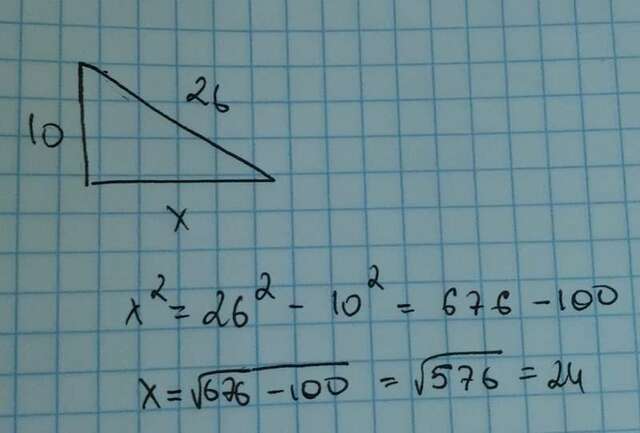 26
10
x
x² = 26² - 10² = 676 - 100
x = √676 - 100 = √576 = 24